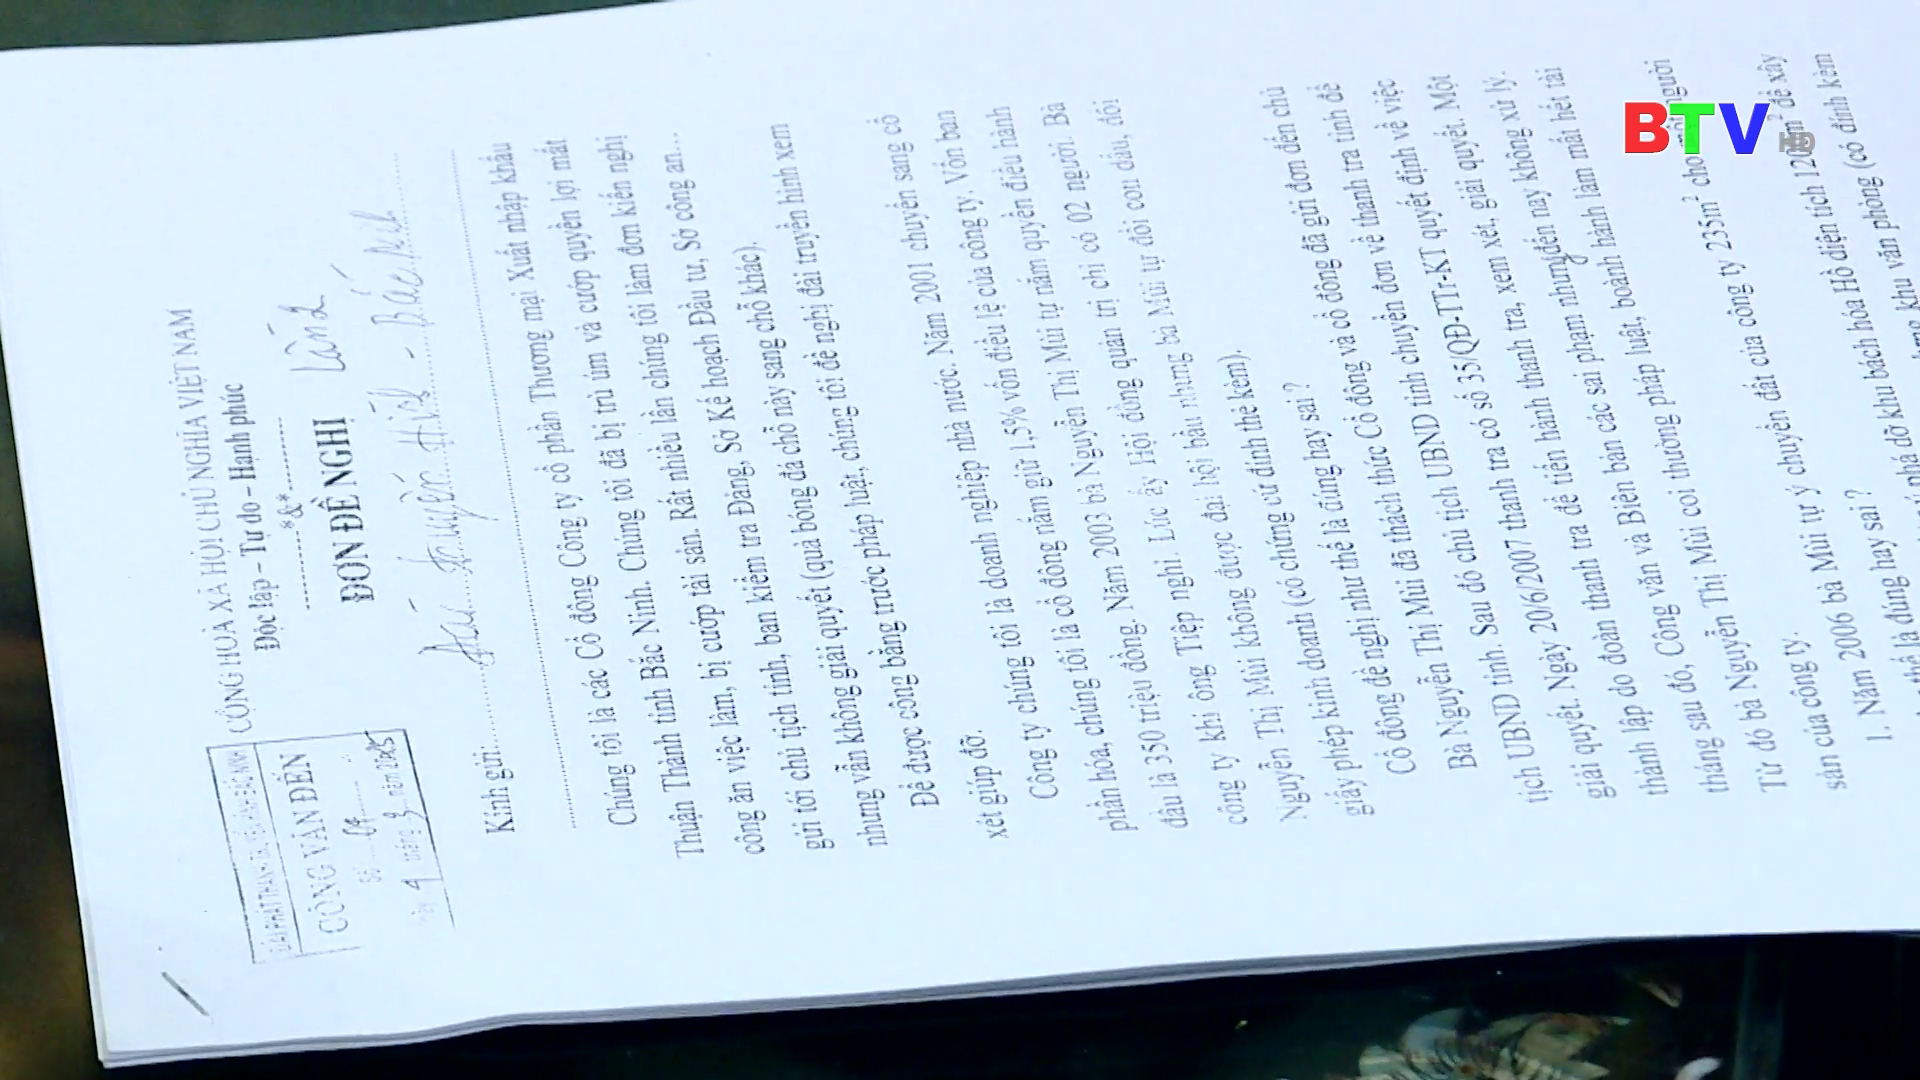 CỘNG HOÀ XÃ HỘI CHỦ NGHĨA VIỆT NAM
Độc lập – Tự do – Hạnh phúc
*&*
ĐƠN ĐỀ NGHỊ
CÔNG VĂN ĐẾN
Số 64
ngày 4 tháng 3 năm
Kính gửi: truyền hình - Bắc Ninh
Chúng tôi là các Cổ đông Công ty cổ phần Thương mại Xuất nhập khẩu
Thuận Thành tỉnh Bắc Ninh. Chúng tôi đã bị trù úm và cướp quyền lợi mất
công ăn việc làm, bị cướp tài sản. Rất nhiều lần chúng tôi làm đơn kiến nghị
gửi tới chủ tịch tỉnh, ban kiểm tra Đảng, Sở Kế hoạch Đầu tư, Sở công an...
nhưng vẫn không giải quyết (quả bóng đá chỗ này sang chỗ khác).
Để được công bằng trước pháp luật, chúng tôi đề nghị đài truyền hình xem
xét giúp đỡ.
Công ty chúng tôi là doanh nghiệp nhà nước. Năm 2001 chuyển sang cổ
phần hóa, chúng tôi là cổ đông nắm giữ 1,5% vốn điều lệ của công ty. Vốn ban
đầu là 350 triệu đồng. Năm 2003 bà Nguyễn Thị Mùi tự nắm quyền điều hành
công ty khi ông Tiệp nghỉ. Lúc ấy Hội đồng quản trị chỉ có 02 người. Bà
Nguyễn Thị Mùi không được đại hội bầu nhưng bà Mùi tự đôi con dấu, đổi
giấy phép kinh doanh (có chứng cứ đính thẻ kèm).
Cổ đông đề nghị như thế là đúng hay sai ?
Bà Nguyễn Thị Mùi đã thách thức Cổ đông và cổ đông đã gửi đơn đến chủ
tịch UBND tỉnh. Sau đó chủ tịch UBND tỉnh chuyển đơn về thanh tra tỉnh để
giải quyết. Ngày 20/6/2007 thanh tra có số 35/QĐ-TTr-KT quyết định về việc
thành lập do đoàn thanh tra để tiến hành thanh tra, xem xét, giải quyết. Một
tháng sau đó, Công văn và Biên bản các sai phạm nhưng đến nay không xử lý.
Từ đó bà Nguyễn Thị Mùi coi thường pháp luật, hoành hành làm mất hết tài
sản của công ty.
1. Năm 2006 bà Mùi tự ý chuyển đất của công ty 235m² cho một người
thế là đúng hay sai ?
phá dỡ khu bách hóa Hồ diện tích 120m² để xây
khu văn phòng (có đính kèm
BTV